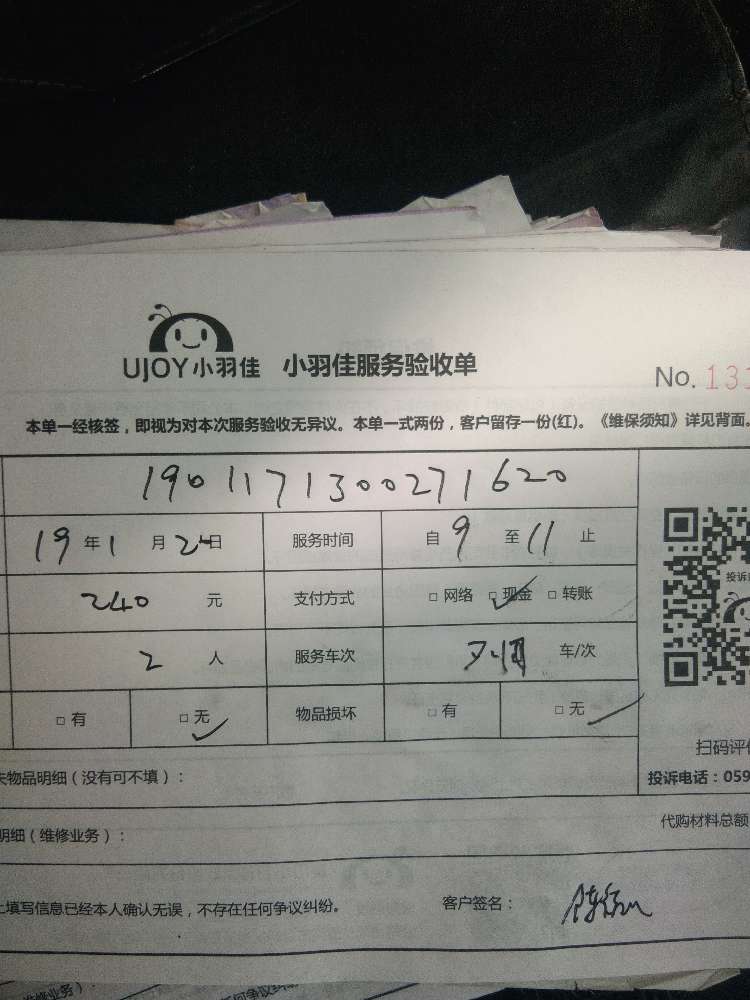 UJOY小羽佳 小羽佳服务验收单
No. 131
本单一经核签，即视为对本次服务验收无异议。本单一式两份，客户留存一份(红)。《维保须知》详见背面。
1901171300271620
19年1月2日 服务时间 自9至11止
240元 支付方式 □网络 □现金 □转账
投诉
2人 服务车次 车/次
□有 □无 物品损坏 □有 □无
扫码评
失物品明细（没有可不填）： 投诉电话：059
明细（维修业务）： 代购材料总额
上填写信息已经本人确认无误，不存在任何争议纠纷。 客户签名：
维修业务）：